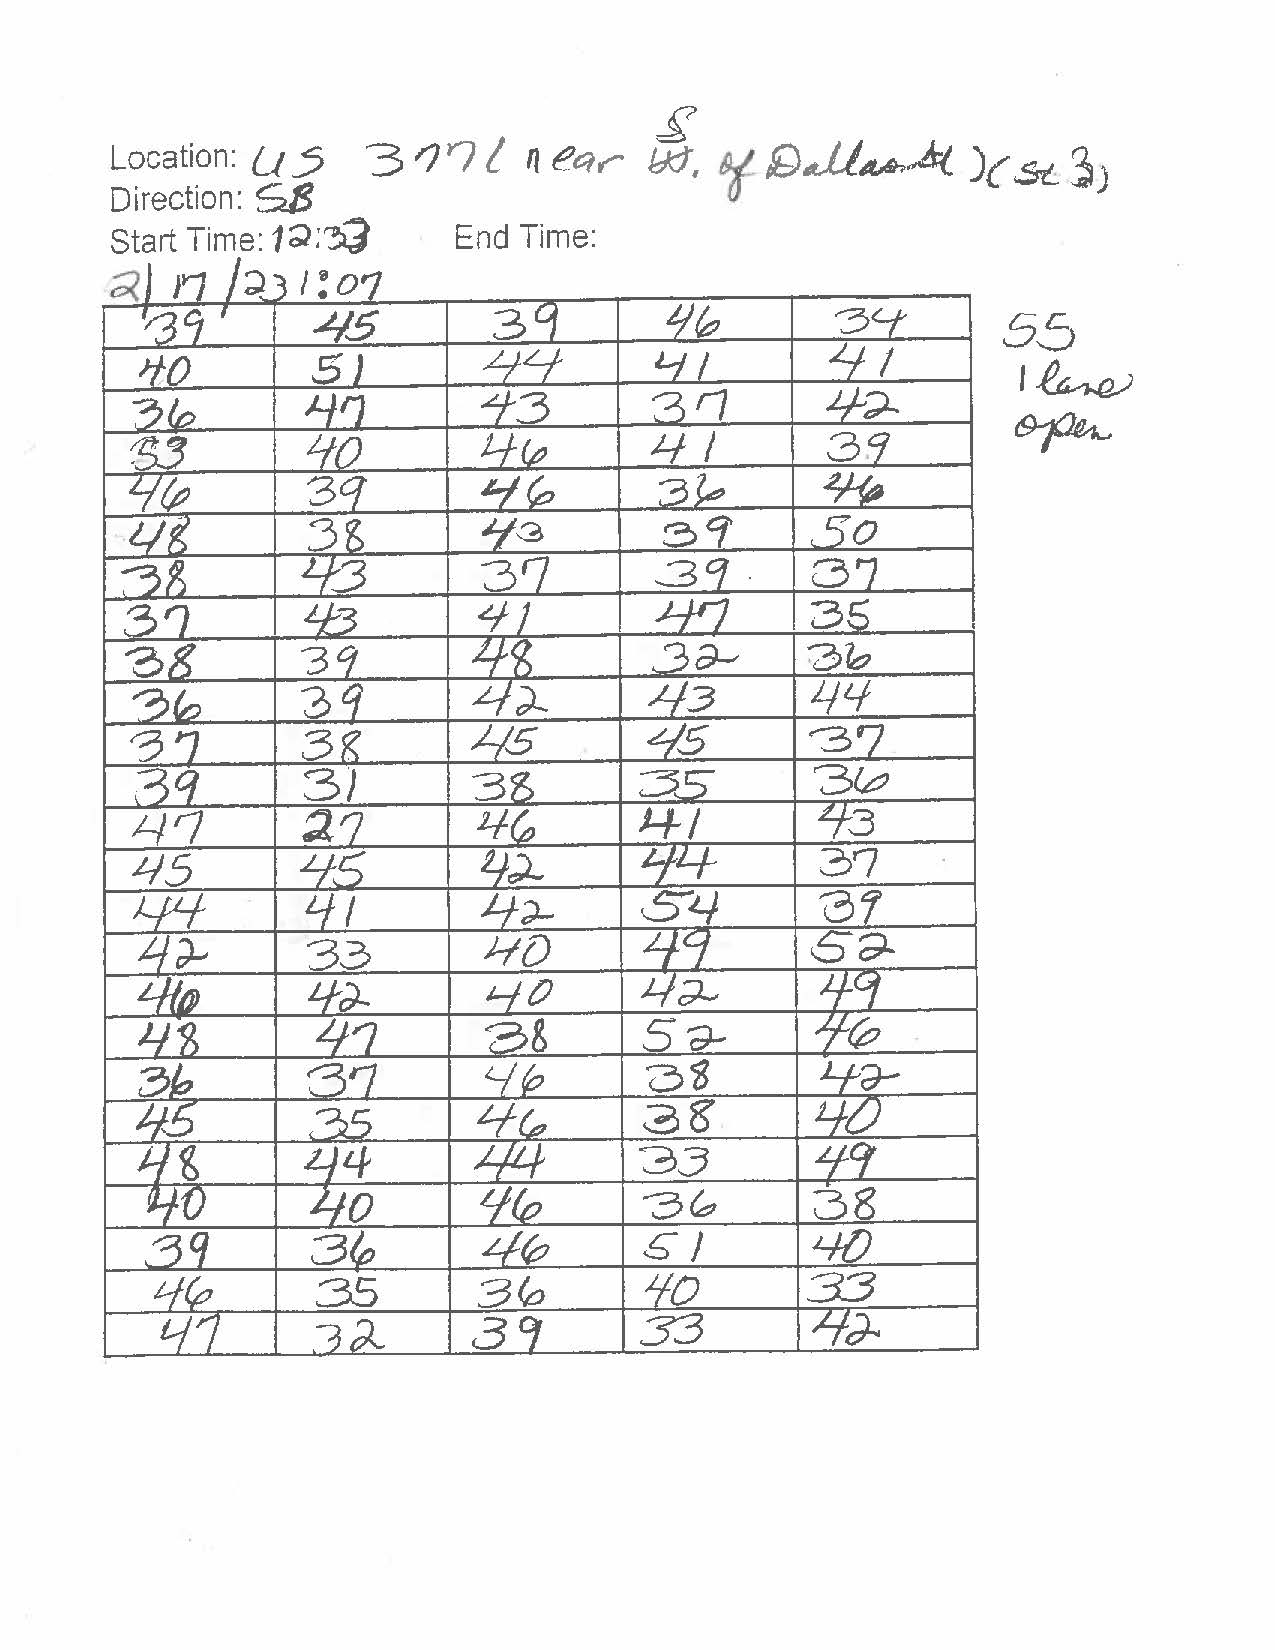 S
Location: US 377 ( near W. of Dallas St )( St 3)
Direction: SB
Start Time: 12:33 End Time:
2/17/23 1:07
39 45 39 46 34 55
40 51 44 41 41 1 lane
36 47 43 37 42 open
53 40 46 41 39
46 39 46 36 46
48 38 43 39 50
38 43 37 39 37
37 43 41 47 35
38 39 48 32 36
36 39 42 43 44
37 38 45 45 37
39 31 38 35 36
47 27 46 41 43
45 45 42 44 37
44 41 42 54 39
42 33 40 49 52
46 42 40 42 49
48 47 38 52 46
36 37 46 38 42
45 35 46 38 40
48 44 44 33 49
40 40 46 36 38
39 36 46 51 40
46 35 36 40 33
47 32 39 33 42